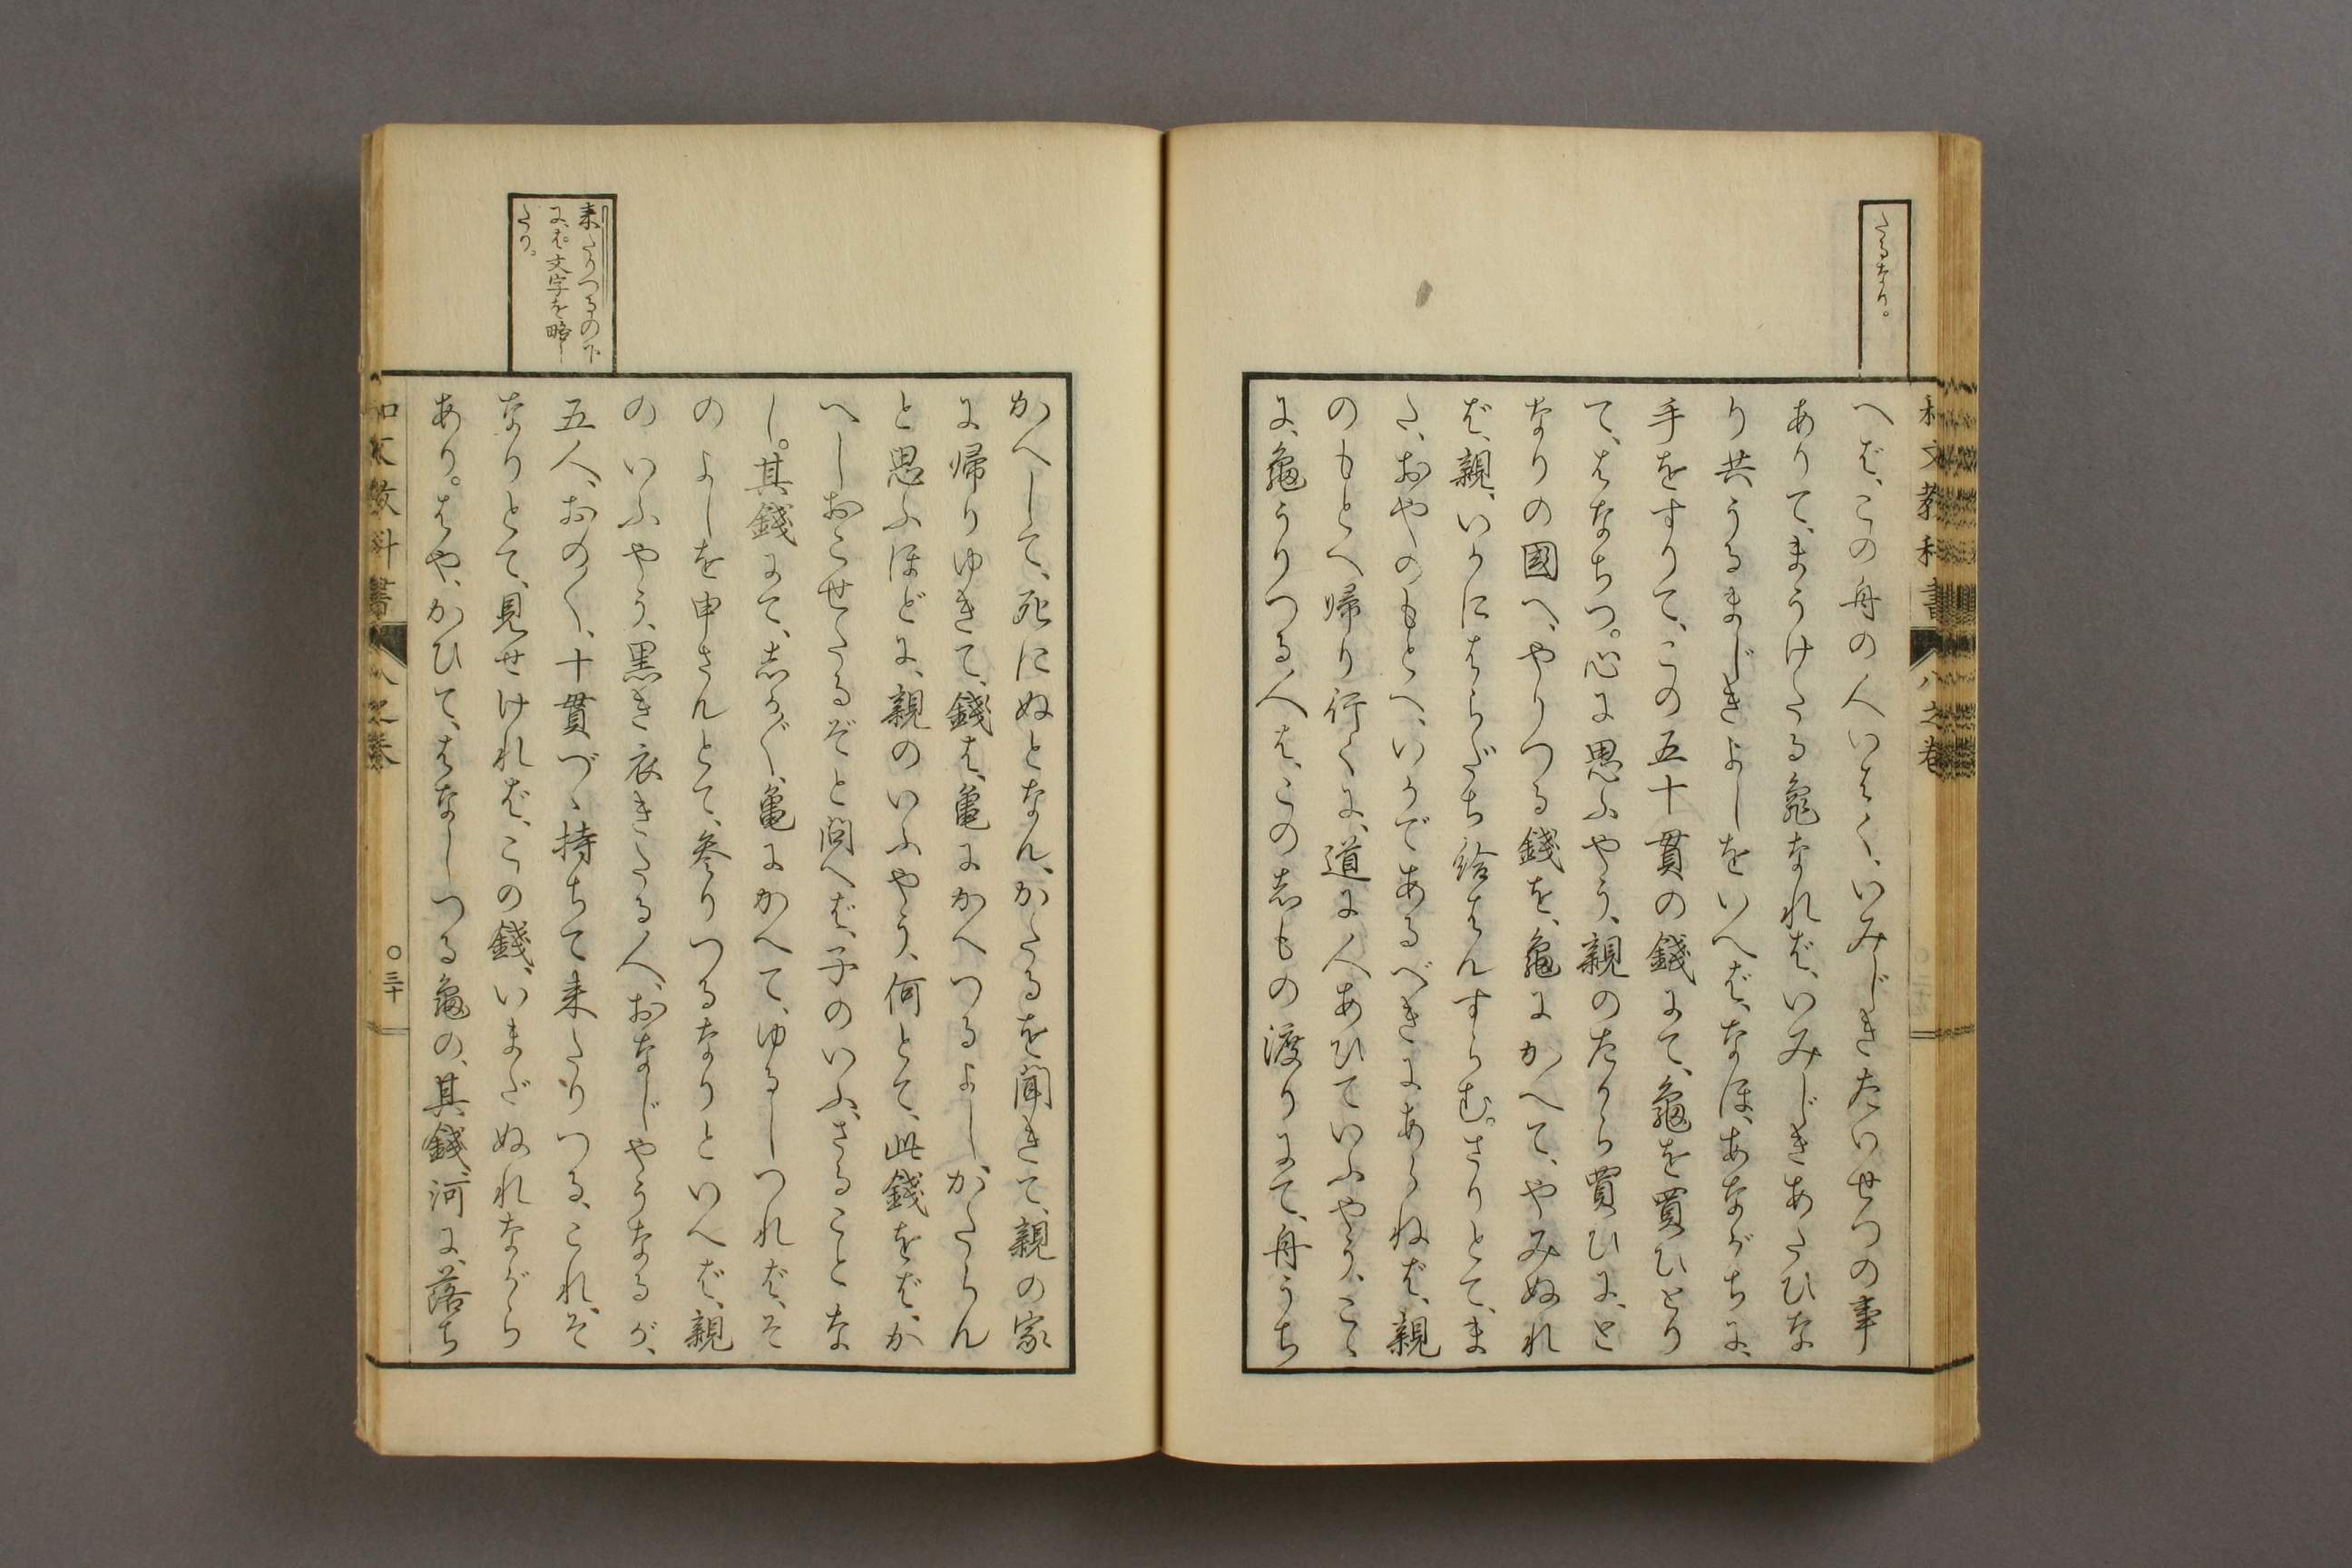 たるなり。
和文教科書 八之巻
へば、この舟の人いはく、いみじきたいせつの事
ありて、まうけたる龜なれば、いみじきあたひな
り共うるまじきよしをいへば、なほ、あながちに、
手をすりて、この五十貫の錢にて、龜を買ひとり
て、はなちつ。心に思ふやう、親のたから買ひに、と
なりの國へ、やりつる錢を、龜にかへて、やみぬれ
ば、親、いかにはらだち給はんすらむ。さりとて、ま
た、おやのもとへ、いかであるべきにあらねば、親
のもとへ帰り行くに、道に人あひていふやう、こゝ
に、龜うりつる人は、この志もの渡りにて、舟うち
かへして、死にぬとなん、かたるを聞きて、親の家
に帰りゆきて、錢は、亀にかへつるよし、かたらん
と思ふほどに、親のいふやう、何とて、此錢をば、か
へしおこせたるぞと問へば、子のいふ、さることな
し。其錢にて、志か〴〵、亀にかへて、ゆるしつれば、そ
のよしを申さんとて、参りつるなりといへば、親
のいふやう、黒き衣きたる人、おなじやうなるが、
五人、おの〱、十貫づゝ持ちて来たりつる、これ、そ
なりとて、見せければ、この錢、いまだぬれながら
あり。はや、かひて、はなしつる龜の、其錢、河に、落ち
来たりつるの下
に、ば。文字を略し
たり。
和文教科書 八之巻 〇三十